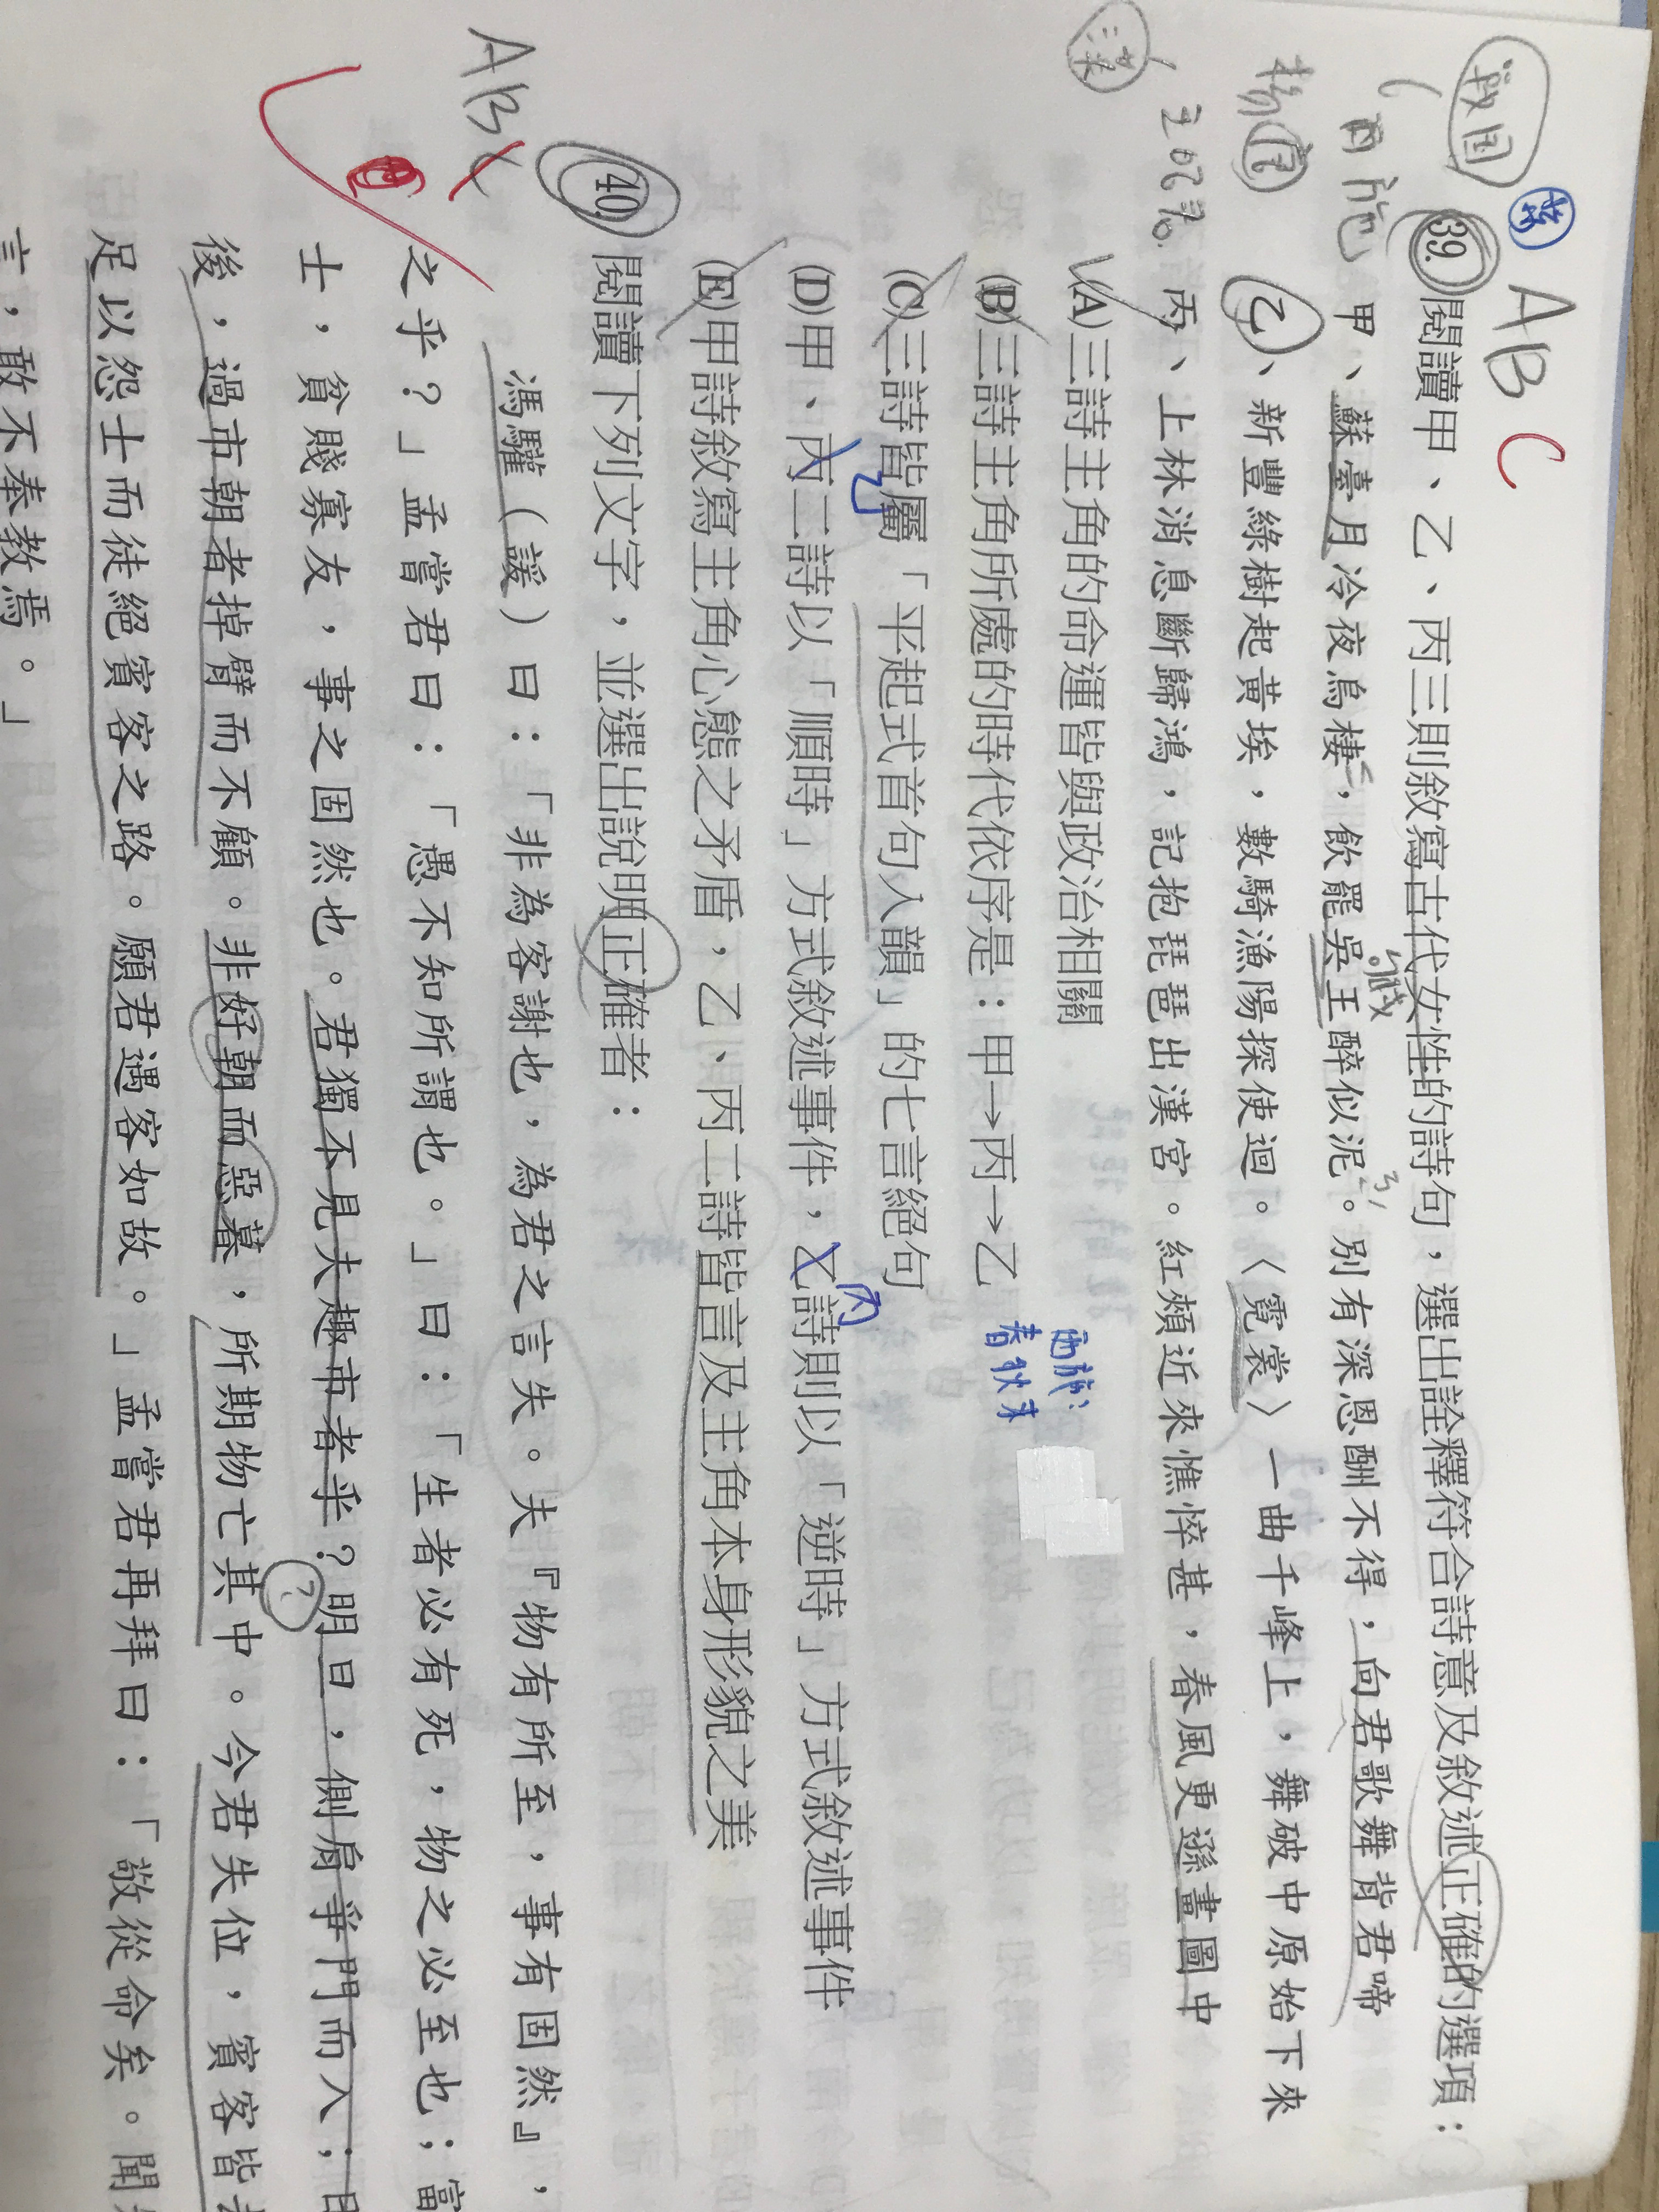 戰國
楚
A B C
39. 閱讀甲、乙、丙三則敘寫古代女性的詩句，選出詮釋符合詩意及敘述正確的選項：
西施
甲、蘇臺月冷夜烏棲，飲罷吳王醉似泥。別有深恩酬不得，向君歌舞背君啼
楊
乙、新豐綠樹起黃埃，數騎漁陽探使迴。〈霓裳〉一曲千峰上，舞破中原始下來
漢
丙、上林消息斷歸鴻，記抱琵琶出漢宮。紅頰近來憔悴甚，春風更遜畫圖中
(A)三詩主角的命運皆與政治相關
西施：
春秋末
(B)三詩主角所處的時代依序是：甲→丙→乙
(C)三詩皆屬「平起式首句入韻」的七言絕句
乙
丙
(D)甲、丙二詩以「順時」方式敘述事件，乙詩則以「逆時」方式敘述事件
(E)甲詩敘寫主角心態之矛盾，乙、丙二詩皆言及主角本身形貌之美
AB
40. 閱讀下列文字，並選出說明正確者：
馮驩（諼）曰：「非為客謝也，為君之言失。夫『物有所至，事有固然』，
之乎？」孟嘗君曰：「愚不知所謂也。」曰：「生者必有死，物之必至也；富
士，貧賤寡友，事之固然也。君獨不見夫趣市者乎？明旦，側肩爭門而入；日
後，過市朝者掉臂而不顧。非好朝而惡暮，所期物亡其中。今君失位，賓客皆
?
足以怨士而徒絕賓客之路。願君遇客如故。」孟嘗君再拜曰：「敬從命矣。聞
言，敢不奉教焉。」